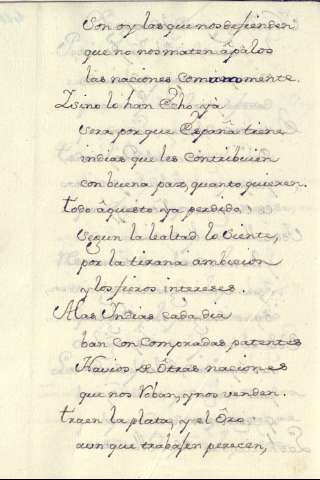 son oy las que nos defienden
que no nos maten â palos
las naciones comunmente.
Y sino lo han Echo ya
sera por que España tiene
indias que les contribuien
con buena paz, quanto quieren.
todo âquesto ya perdido
segun la lealtad lo siente,
por la tirana ambicion
y los fieros intereses.
A las Indias cada dia
ban con compradas patentes
Navios de Ôtras naciones
que nos Roban, y nos venden.
traen la plata, y el Ôro
aun que trabajen perecen,